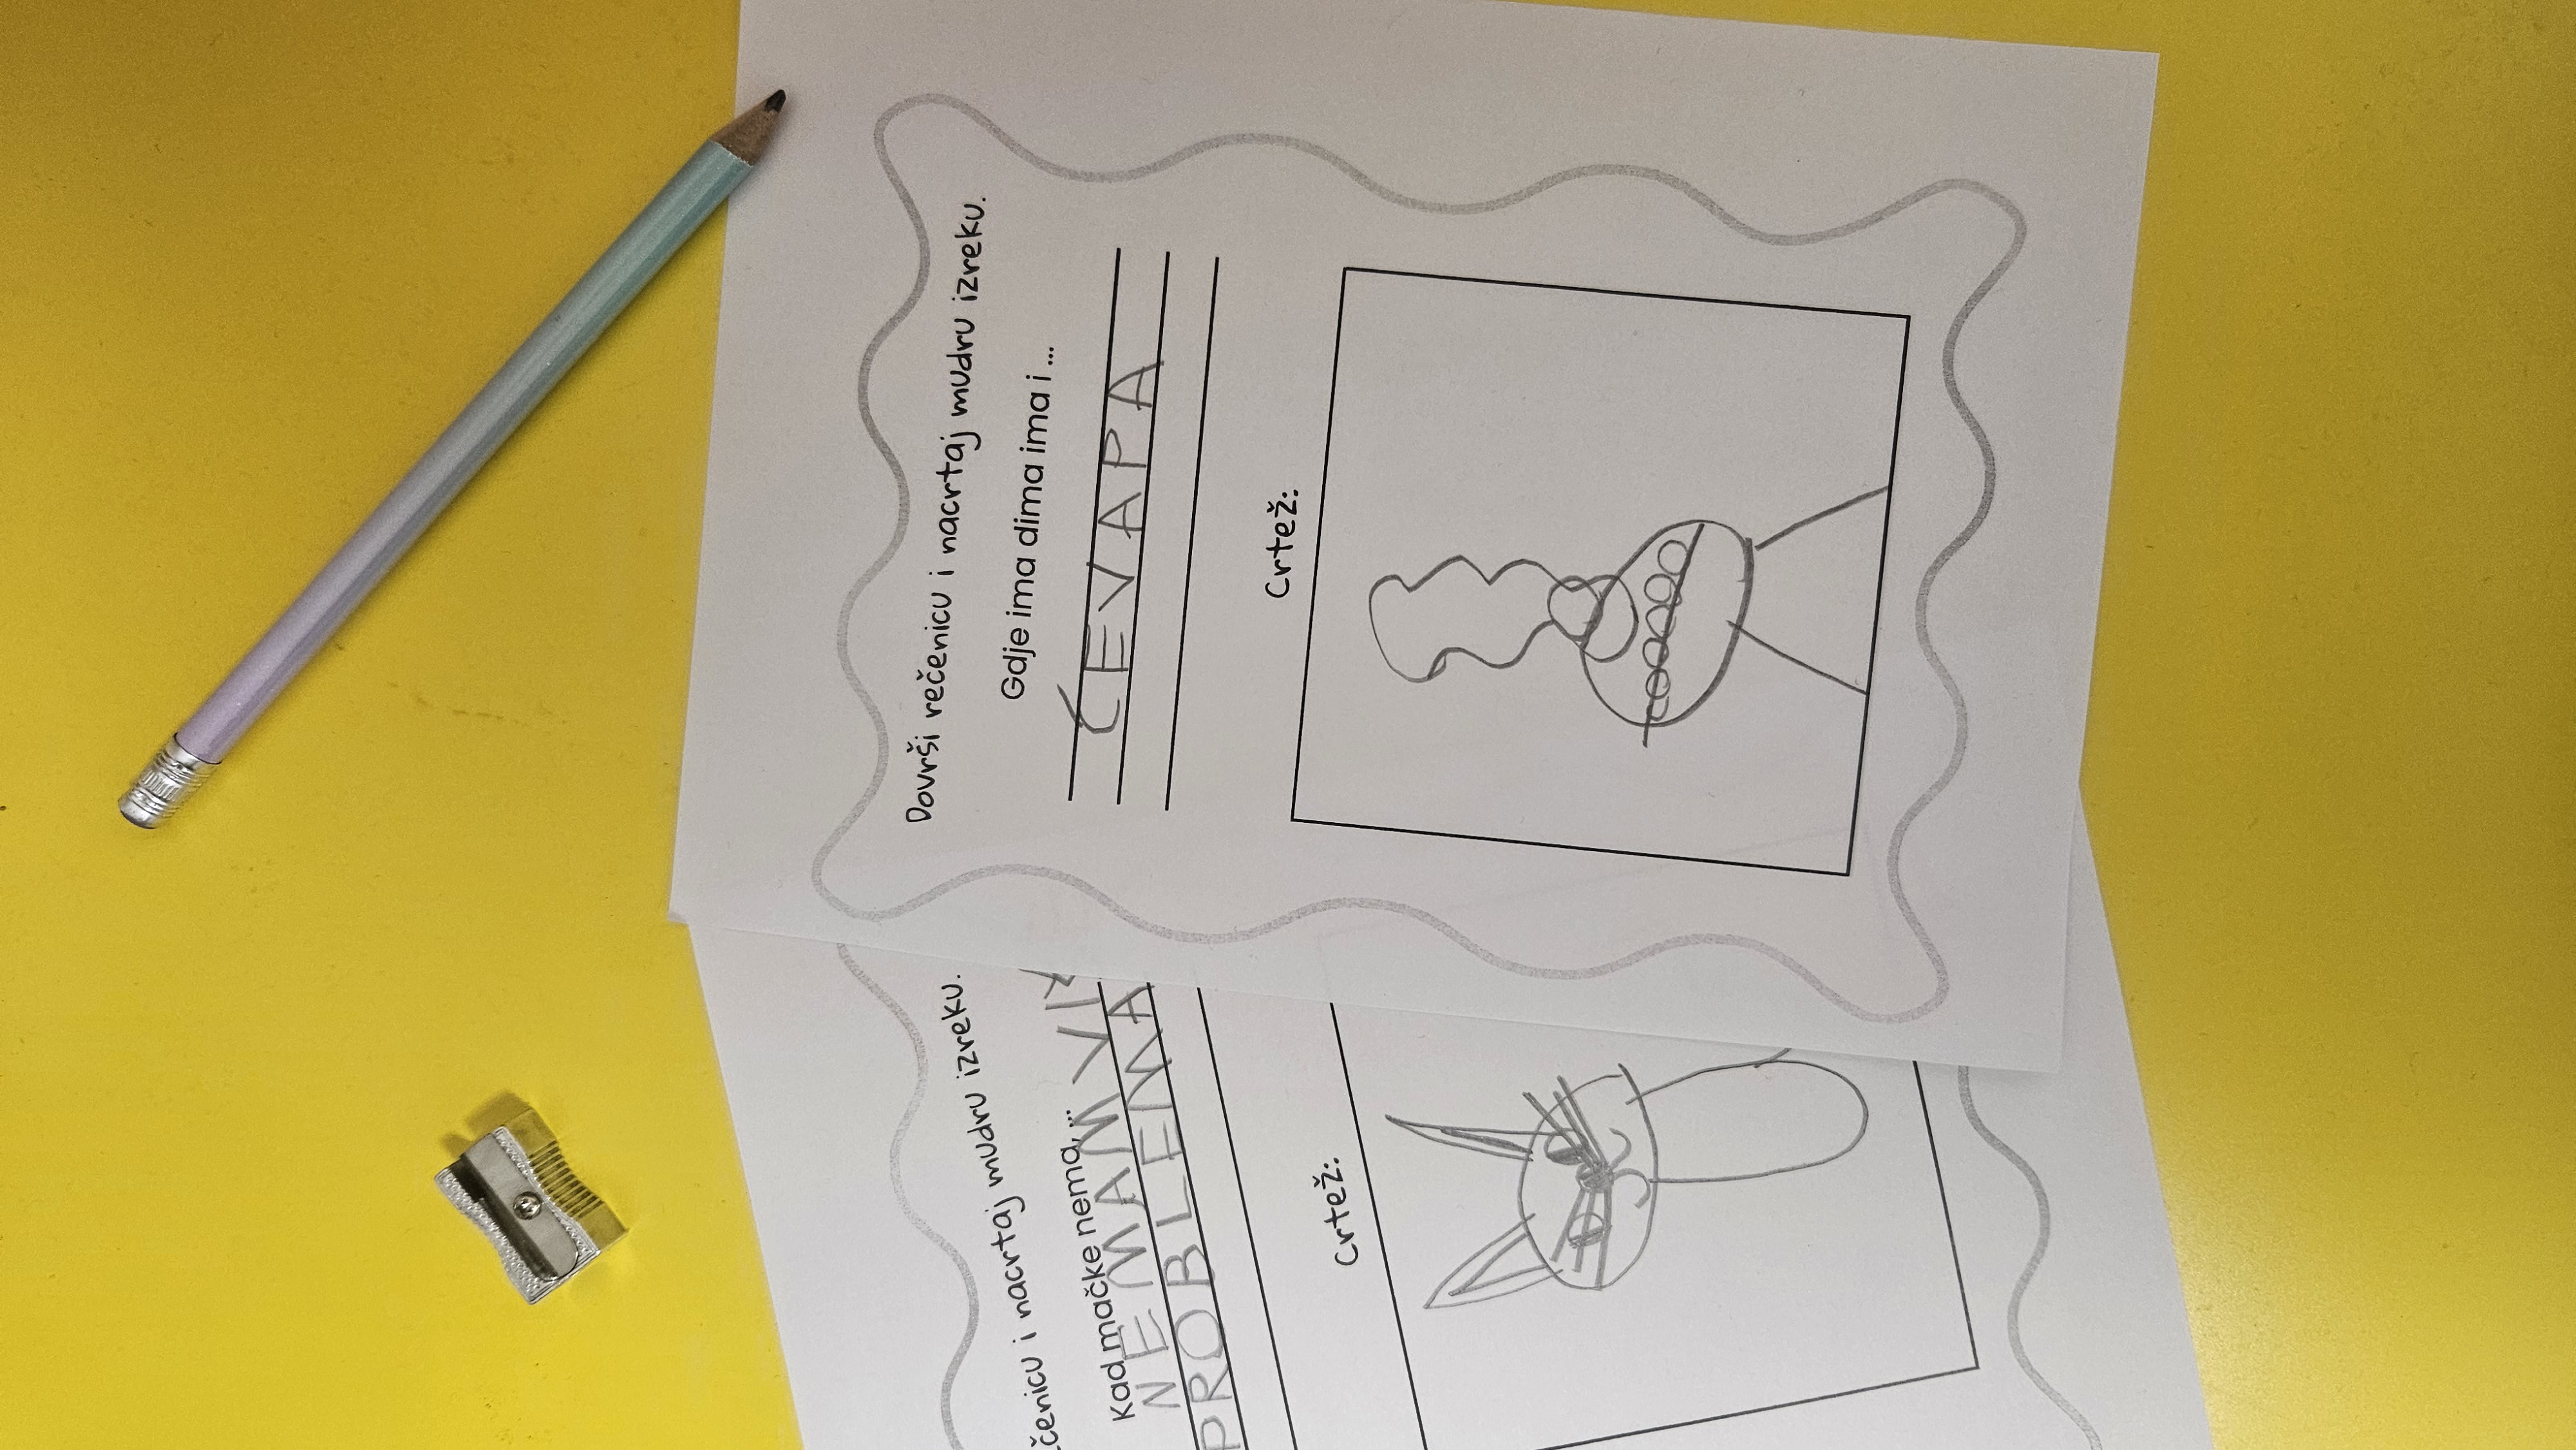 čenicu i nacrtaj mudru izreku.
Kad mačke nema, ...
NEMAM
PROBLEMA
Crtež:
Dovrši rečenicu i nacrtaj mudru izreku.
Gdje ima dima ima i ...
ĆEVAPA
Crtež: